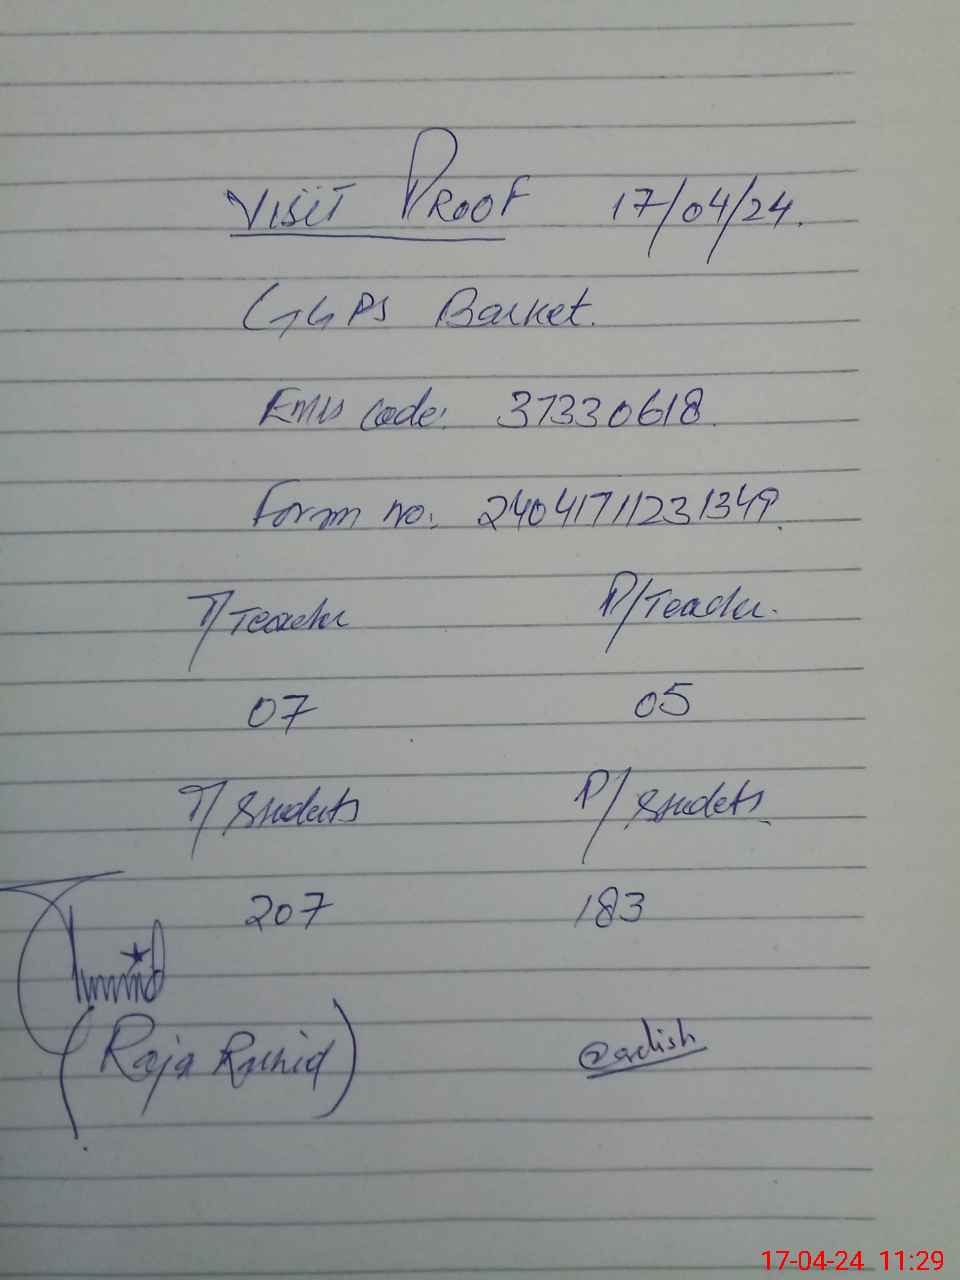 VISIT PROOF 17/04/24.
GGPS Barket.
Emis code: 37330618.
Form no: 24041711231349.
T/Teacher P/Teacher.
07 05
T/Students P/Students
207 183
(Raja Rashid)
17-04-24 11:29